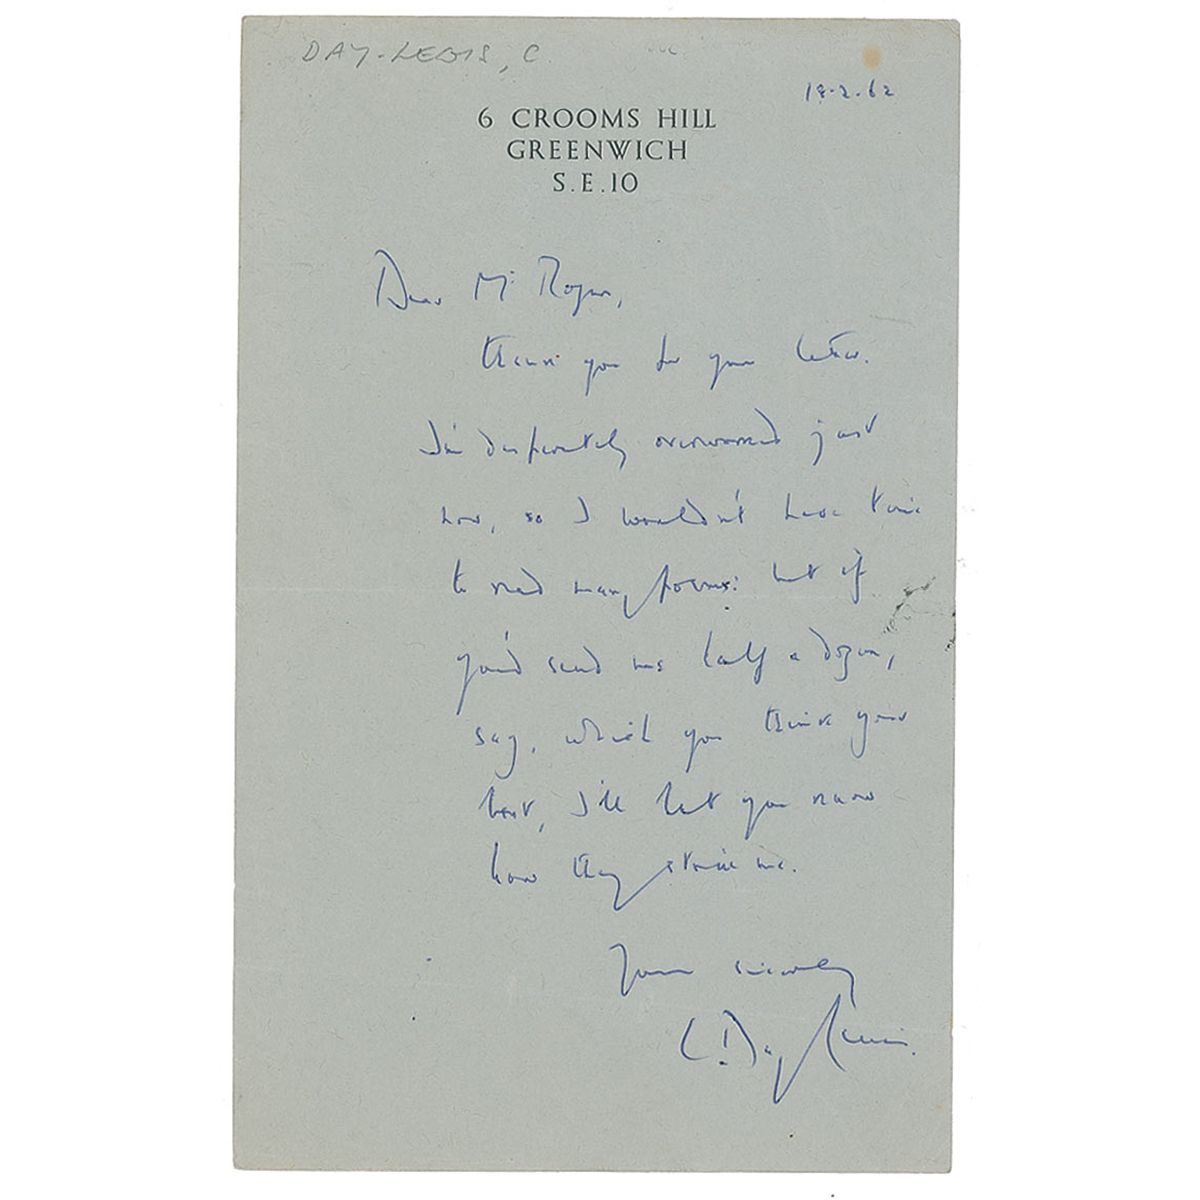 DAY-LEWIS, C.
18-2-62
6 CROOMS HILL
GREENWICH
S.E.10
Dear Mr Roger,
thank you for your letter.
I'm desperately overworked just
now, so I wouldn't have time
to read many poems: but if
you'd send me half a dozen,
say, which you think your
best, I'll let you know
how they strike me.
Yours sincerely
C. Day Lewis.